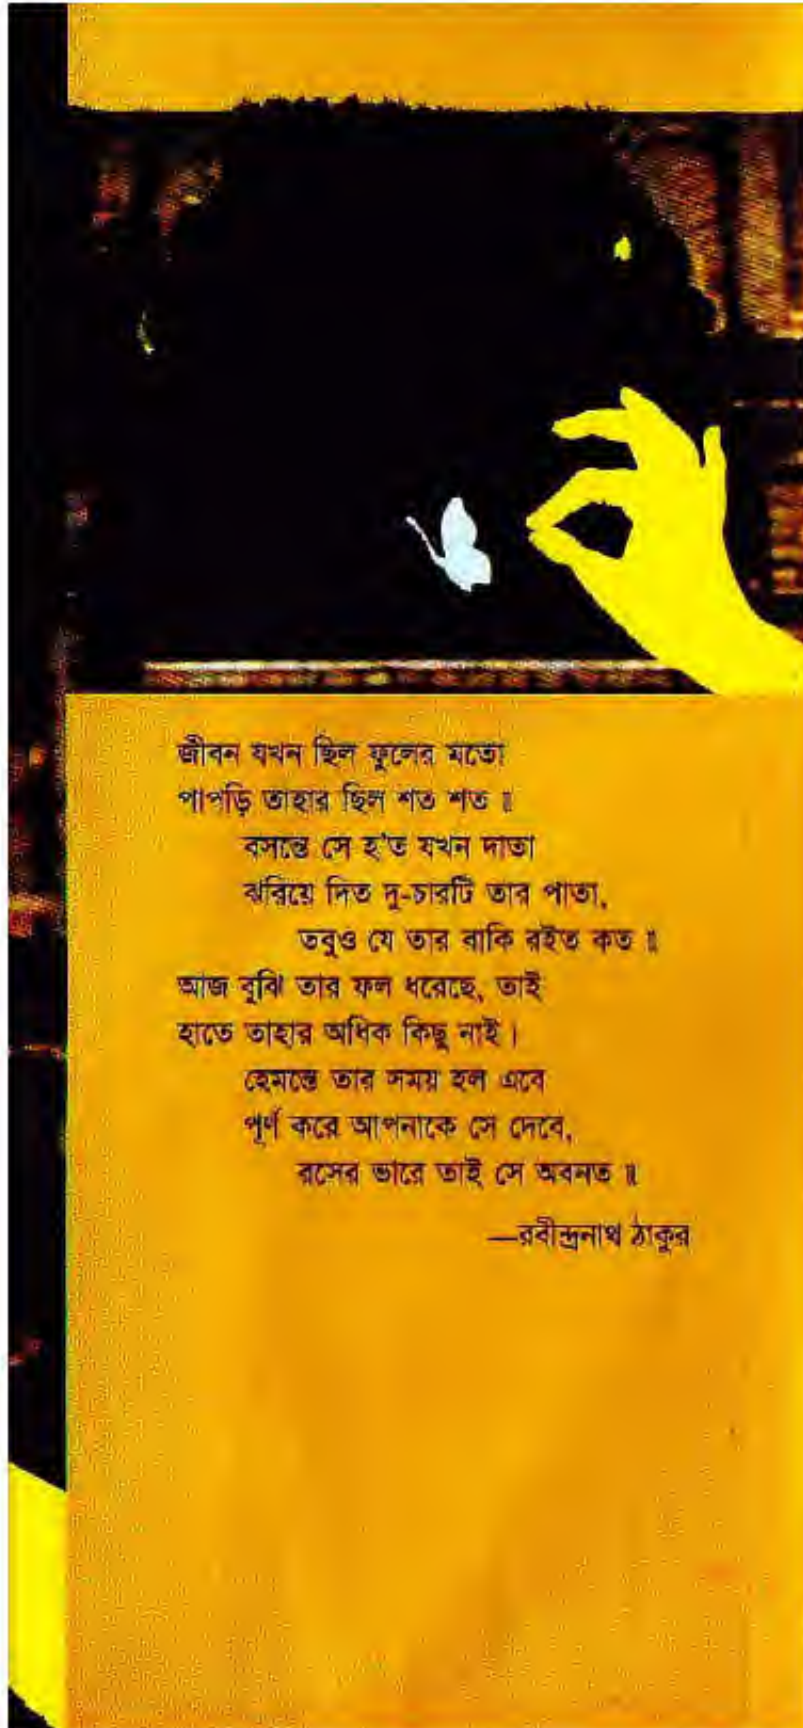 জীবন যখন ছিল ফুলের মতো
পাপড়ি তাহার ছিল শত শত ॥
বসন্তে সে হ'ত যখন দাতা
ঝরিয়ে দিত দু-চারটি তার পাতা,
তবুও যে তার বাকি রইত কত ॥
আজ বুঝি তার ফল ধরেছে, তাই
হাতে তাহার অধিক কিছু নাই।
হেমন্তে তার সময় হল এবে
পূর্ণ করে আপনাকে সে দেবে,
রসের ভারে তাই সে অবনত ॥
—রবীন্দ্রনাথ ঠাকুর